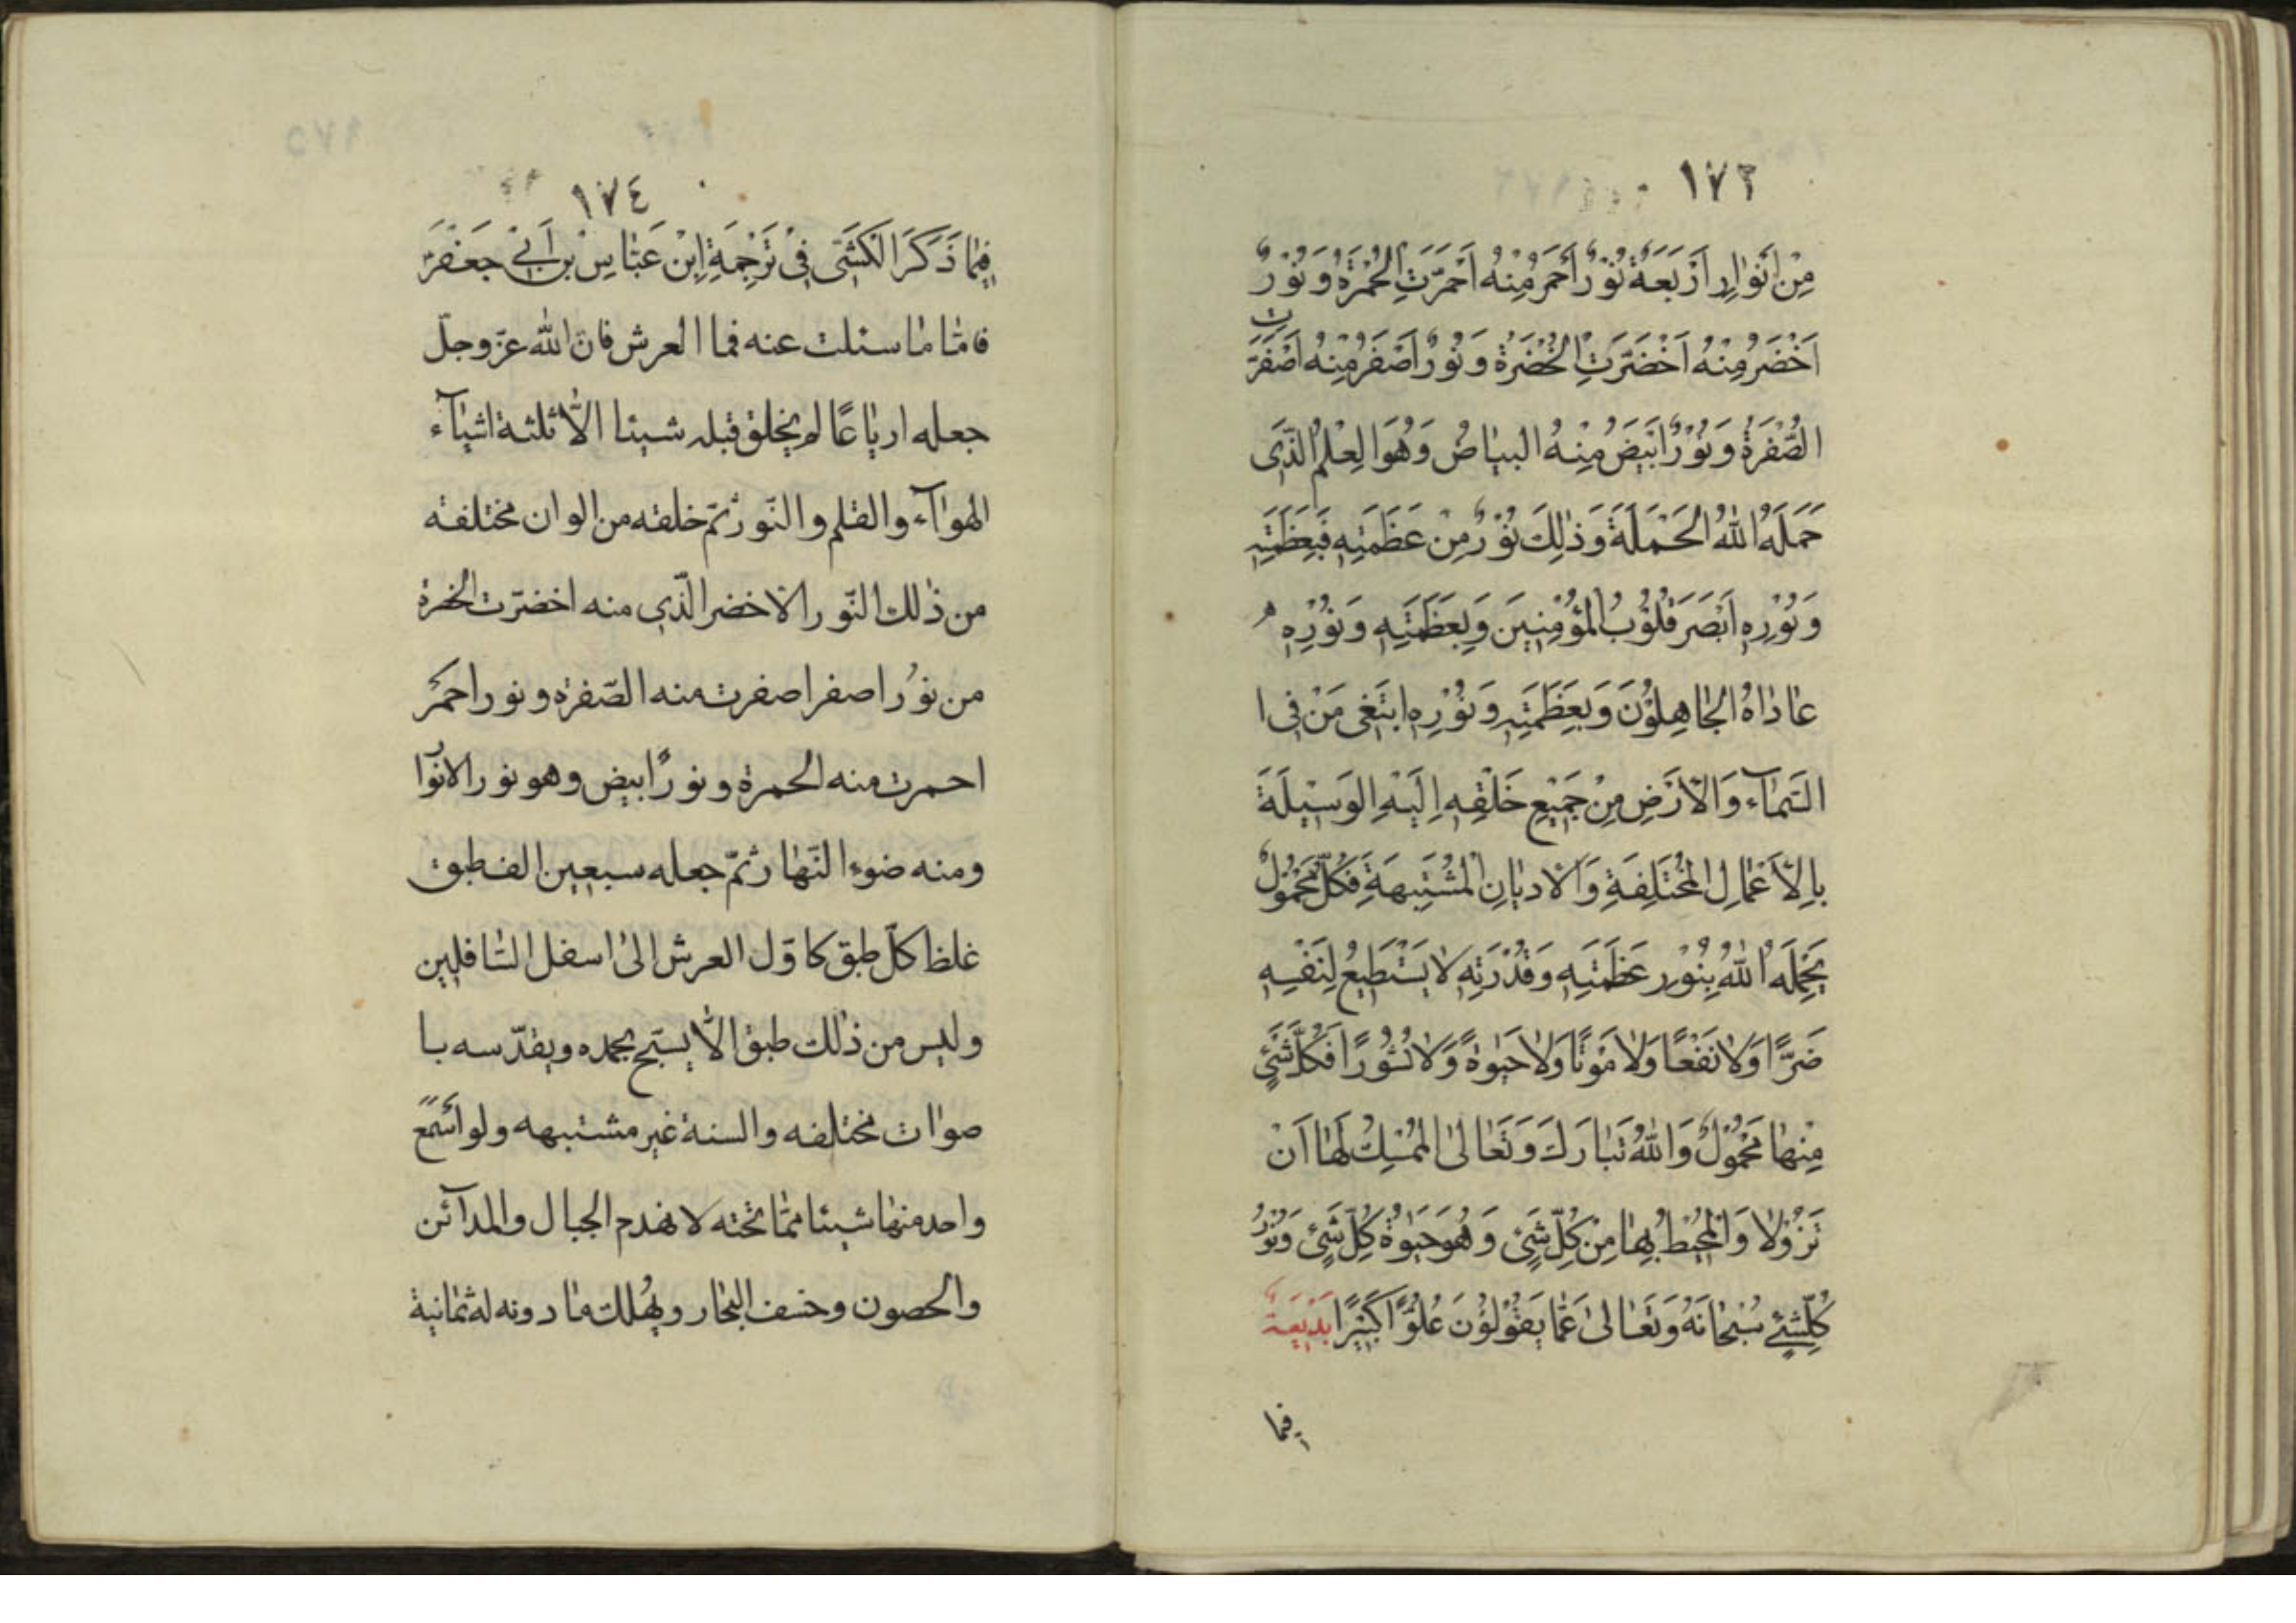 ١٧٣
مِنْ اَنْوٰارِ اَرْبَعَةٍ نُوْرٌ اَحْمَرُ مِنْهُ اَحْمَرَّتِ الْحُمْرَةُ وَ نُوْرٌ
اَخْضَرُ مِنْهُ اَخْضَرَّتِ الْخُضْرَةُ وَ نُوْرٌ اَصْفَرُ مِنْهُ اَصْفَرَّتِ
الصُّفْرَةُ وَ نُوْرٌ اَبْيَضُ مِنْهُ البيٰاضُ وَ هُوَ الْعِلْمُ الَّذِى
حَمَلَهُ اللهُ الْحَمَلَةَ وَ ذٰلِكَ نُوْرٌ مِنْ عَظَمَتِهِ فَبِعَظَمَتِهِ
وَ نُوْرِهِ اَبْصَرَ قُلُوْبُ الْمُؤْمِنِيْنَ وَ بِعَظَمَتِهِ وَ نُوْرِهِ
عٰادٰاهُ الْجٰاهِلُوْنَ وَ بِعَظَمَتِهِ وَ نُوْرِهِ ابْتَغٰى مَنْ فِى ا
السَّمٰآءِ وَ الْاَرْضِ مِنْ جَمِيْعِ خَلْقِهِ اِلَيْهِ الْوَسِيْلَةَ
بِالْاَعْمٰالِ الْمُخْتَلِفَةِ وَ الْاَدْيٰانِ الْمُشْتَبِهَةِ فَكُلُّ مَحْمُوْلٌ
يَحْمِلُهُ اللهُ بِنُوْرِ عَظَمَتِهِ وَ قُدْرَتِهِ لٰا يَسْتَطِيْعُ لِنَفْسِهِ
ضَرًّا وَ لٰا نَفْعًا وَ لٰا مَوْتًا وَ لٰا حَيٰوةً وَ لٰا نُشُوْرًا فَكُلُّ شَئٍ
مِنْهٰا مَحْمُوْلٌ وَ اللهُ تَبٰارَكَ وَ تَعٰالٰى الْمُمْسِكُ لَهٰا اَنْ
تَزُوْلٰا وَ الْمُحِيْطُ بِهٰا مِنْ كُلِّ شَئٍ وَ هُوَ حَيٰوةُ كُلِّ شَئٍ وَ نُوْرُ
كُلِّشَئٍ سُبْحٰانَهُ وَ تَعٰالٰى عَمّٰا يَقُوْلُوْنَ عُلُوًّا كَبِيْرًا بَدِيْعَةٌ
فيما
١٧٤
فِيمٰا ذَكَرَ الْكَشَّى فِىْ تَرْجِمَةِ اِبْنِ عَبّٰاسْ بن اَبِىْ جَعْفَرَ
فامّٰا مٰا سئلت عنه فما العرش فان الله عزّ وجلّ
جعله اربٰاعًا لم يخلق قبله شيئا الّا ثلثة اشيٰآء
الهوٰآء و القلم و النّور ثمّ خلقه من الوان مختلفة
من ذٰلك النّور الاخضر الّذى منه اخضرّت الخضرة
من نوُر اصفر اصفرت منه الصّفرة و نور احمَرَ
احمرت منه الحمرة و نورٌ ابيض و هو نور الانوٰار
ومنه ضوء النّهٰار ثمّ جعله سبعين الف طبق
غلظ كلّ طبق كاوّل العرش الىٰ اسفل السّٰافلين
و ليس من ذٰلك طبق الّا يسبّح بحمده و يقدّسه با
صوٰات مختلفه و السنة غير مشتبهه و لو اَسْمَعَ
واحد منهٰا شيئا ممّٰا تحته لا نهدم الجبال و المدآئن
و الحصون و خسف البحٰار و يهُلك مٰا دونه له ثمٰانية